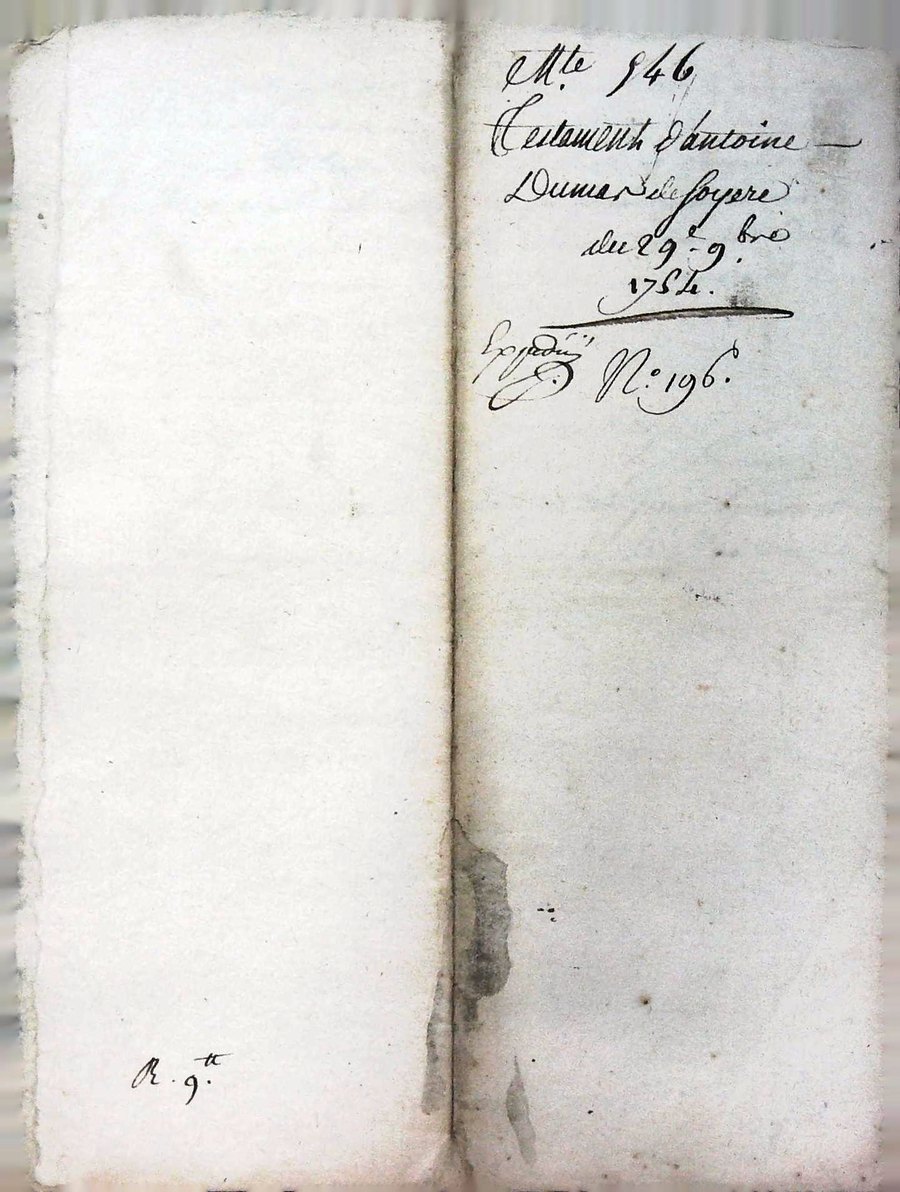 Mte 546
Testament d'antoine
Dumas de Soyere
du 29e 9.bre
1754.
Expedié
N.o 196.
R. 9.tt